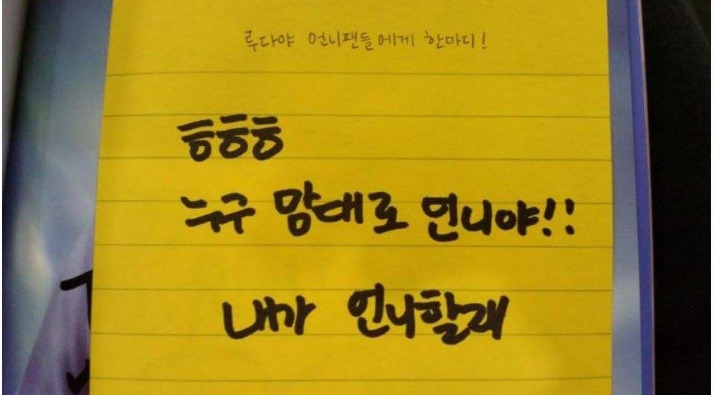 루다야 언니팬들에게 한마디!
흥흥흥
누구 맘대로 언니야!!
내가 언니할래